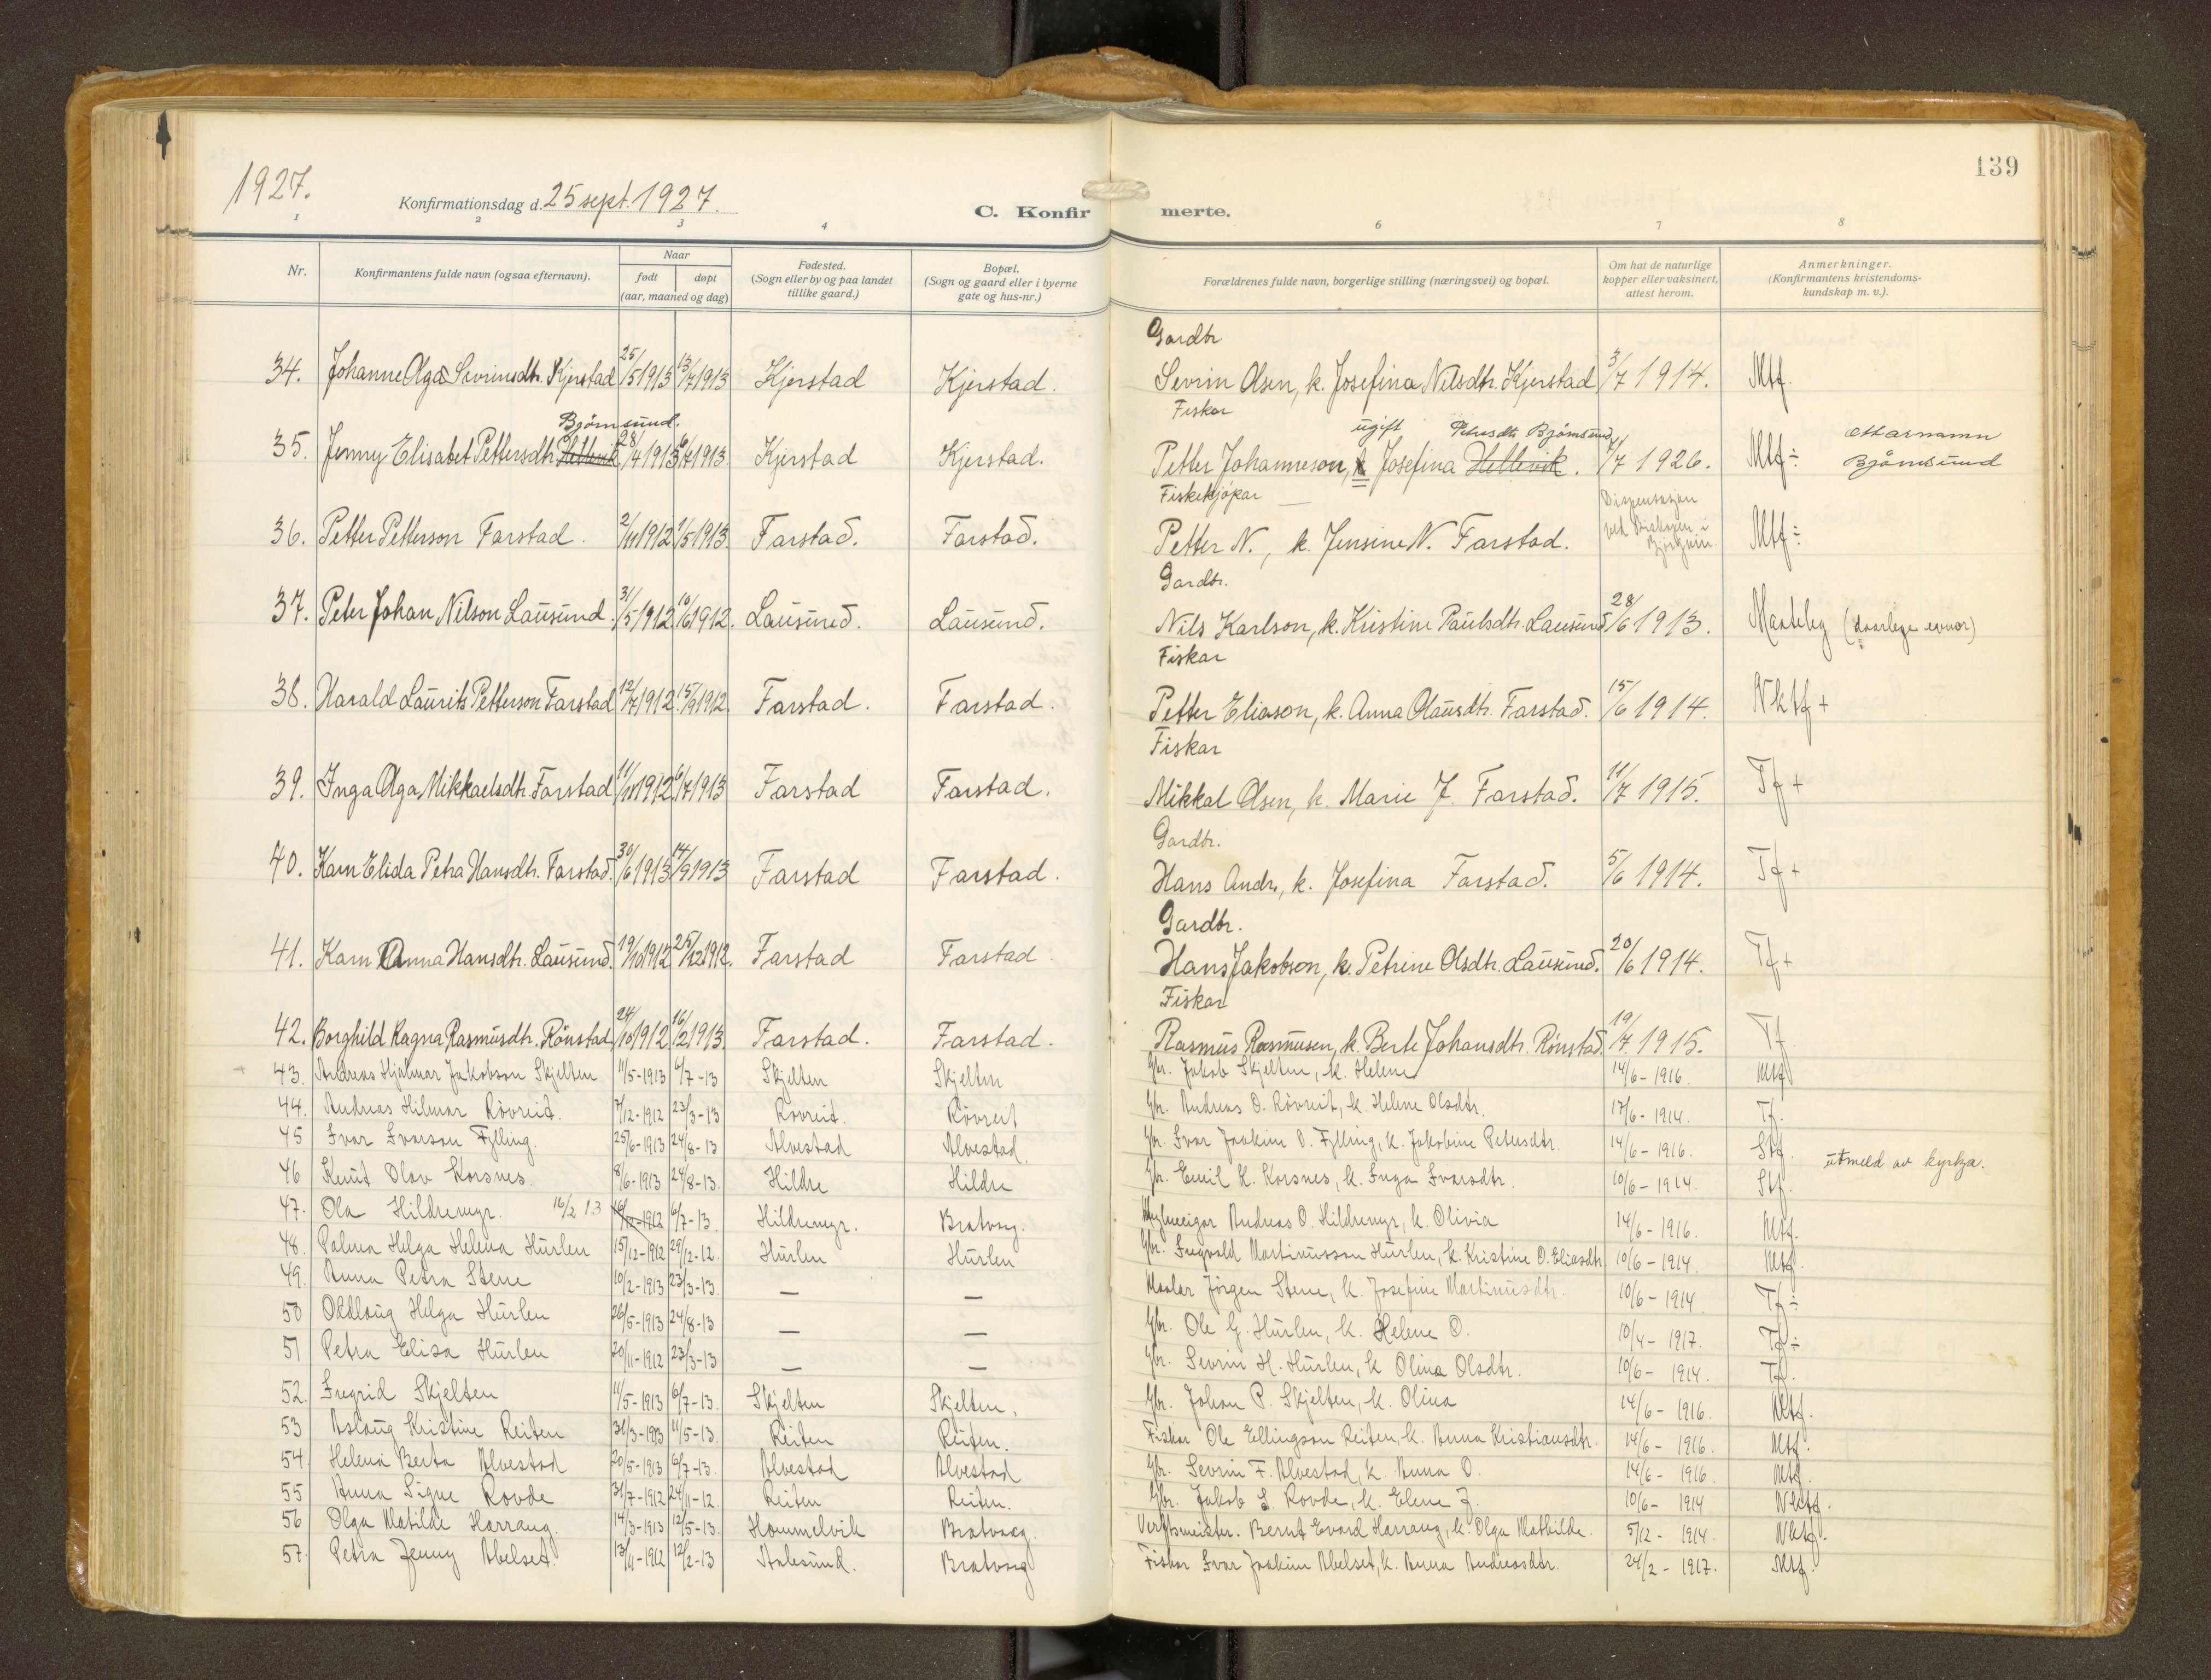 1927.
139
Konfirmationsdag d. 25 sept. 1927.
C. Konfirmerte.
1 2 3 4 6 7 8
Nr.
Konfirmantens fulde navn (ogsaa efternavn).
Naar
født
døpt
(aar, maaned og dag)
Fødested.
(Sogn eller by og paa landet
tillike gaard.)
Bopæl.
(Sogn og gaard eller i byerne
gate og hus-nr.)
Forældrenes fulde navn, borgerlige stilling (næringsvei) og bopæl.
Om hat de naturlige
kopper eller vaksinert,
attest herom.
Anmerkninger.
(Konfirmantens kristendoms-
kundskap m. v.).
Gardbr
34. Johanne Olga Sevrinsdtr. Kjerstad 25/5 1913 13/7 1913 Kjerstad Kjerstad. Sevrin Olsen, k. Josefina Nilsdtr. Kjerstad 3/7 1914. Mtf.
Fiskar
Bjørnsund. ugift Petersdtr Bjørnsund
35. Jenny Elisabet Pettersdtr. Hellevik 28/4 1913 6/7 1913. Kjerstad Kjerstad. Petter Johanneson, k Josefina Hellevik. 7/7 1926. Mtf ÷ ettarnamn
Bjørnsund
Fiskekjøpar
36. Petter Petterson Farstad. 2/11 1912 1/5 1913. Farstad. Farstad. Petter N., k. Jensine N. Farstad. Dispensasjon
ved Biskopen i
Bjørgvin. Mtf ÷
Gardbr.
37. Peter Johan Nilson Lausund. 31/5 1912 10/6 1912. Lausund. Lausund. Nils Karlson, k. Kristine Paulsdtr. Lausund 28/6 1913. Maateleg (daarlege evnor)
Fiskar
38. Harald Laurits Petterson Farstad 12/7 1912. 15/9 1912. Farstad. Farstad. Petter Eliason, k. Anna Olausdtr. Farstad. 15/6 1914. Nktf +
Fiskar
39. Inga Olga Mikkaelsdtr. Farstad 11/11 1912 6/7 1913 Farstad Farstad. Mikkal Olsen, k. Marie J. Farstad. 11/7 1915. Tf +
Gardbr.
40. Karn Elida Petra Hansdtr. Farstad. 30/6 1913 14/9 1913 Farstad Farstad. Hans Andr., k. Josefina Farstad. 5/6 1914. Tf +
Gardbr.
41. Karn Anna Hansdtr. Lausund. 19/10 1912 25/12 1912. Farstad Farstad. Hans Jakobson, k. Petrine Olsdtr. Lausund. 20/6 1914. Tf +
Fiskar
42. Borghild Ragna Rasmusdtr. Rönstad 24/10 1912 16/2 1913. Farstad. Farstad. Rasmus Rasmusen, k. Berte Johansdtr. Rönstad. 19/7. 1915. Tf.
43. Andreas Hjalmar Jakobson Skjelten 11/5-1913 6/7-13 Skjelten Skjelten Gbr. Jakob Skjelten, k. Helene 14/6-1916. Mtf
44. Andreas Hilmar Rövreit. 7/12-1912 23/3-13 Rövreit. Rövreit Gbr. Andreas O. Rövreit, k. Helene Olsdtr. 17/6-1914. Tf.
45 Ivar Ivarson Fylling. 25/6-1913 24/8-13 Alvestad Alvestad. Gbr. Ivar Joakim O. Fylling, k. Jakobine Petersdtr. 14/6-1916. Stf.
46 Knut Olav Korsnes. 8/6-1913 24/8-13. Hildre Hildre Gbr. Emil K. Korsnes, k. Inga Ivarsdtr. 10/6-1914. Stf. utmeld av kyrkja.
47. Ola Hildremyr. 16/2 13 16/12-1912 6/7-13. Hildremyr. Bratvog. Andreas O. Hildremyr, k. Olivia 14/6-1916. Mtf.
48. Palma Helga Helena Hurlen 15/12-1912 29/12-12. Hurlen Hurlen Gbr. Ingvald Martinusson Hurlen, k. Kristine O. Eliasdtr. 10/6-1914. Mtf.
49. Anna Petra Stene 10/2-1913 23/3-13. — — Maalar Jörgen Stene, k. Josefine Martinusdtr. 10/6-1914 Tf ÷
50 Oddlaug Helga Hurlen 26/5-1913 24/8-13 — — Gbr. Ole G. Hurlen, k. Helene O. 10/4-1917. Tf ÷
51 Petra Elisa Hurlen 20/11-1912 23/3-13 — — Gbr. Sevrin H. Hurlen, k Olina Olsdtr. 10/6-1914. Tf.
52. Ingrid Skjelten 11/5-1913 6/7-13. Skjelten Skjelten. Gbr. Johan P. Skjelten, k. Olina 14/6-1916. Mtf.
53 Aslaug Kristine Reiten 31/3-1913 11/5-13. Reiten Reiten. Fiskar Ole Ellingson Reiten, k. Anna Kristiansdtr. 14/6-1916. Mtf.
54. Helena Berta Alvestad 20/5-1913 6/7-13. Alvestad Alvestad Gbr. Sevrin F. Alvestad, k. Anna O. 14/6-1916. Mtf.
55 Anna Signe Rovde 31/7-1912 24/11-12. Reiten Reiten. Gbr. Jakob L. Rovde, k. Elene J. 10/6-1914 Nktf.
56 Olga Matilde Harrang. 14/3-1913 12/5-13. Hommelvik Bratvaag. Verftsmeister. Bernt Evard Harrang, k. Olga Mathilde. 5/12-1914. Nktf.
57. Petra Jenny Abelset. 13/11-1912 12/2-13 Aalesund. Bratvaag Fiskar Ivar Joakim Abelset, k. Anna Andreasdtr. 24/2-1917. Mtf.